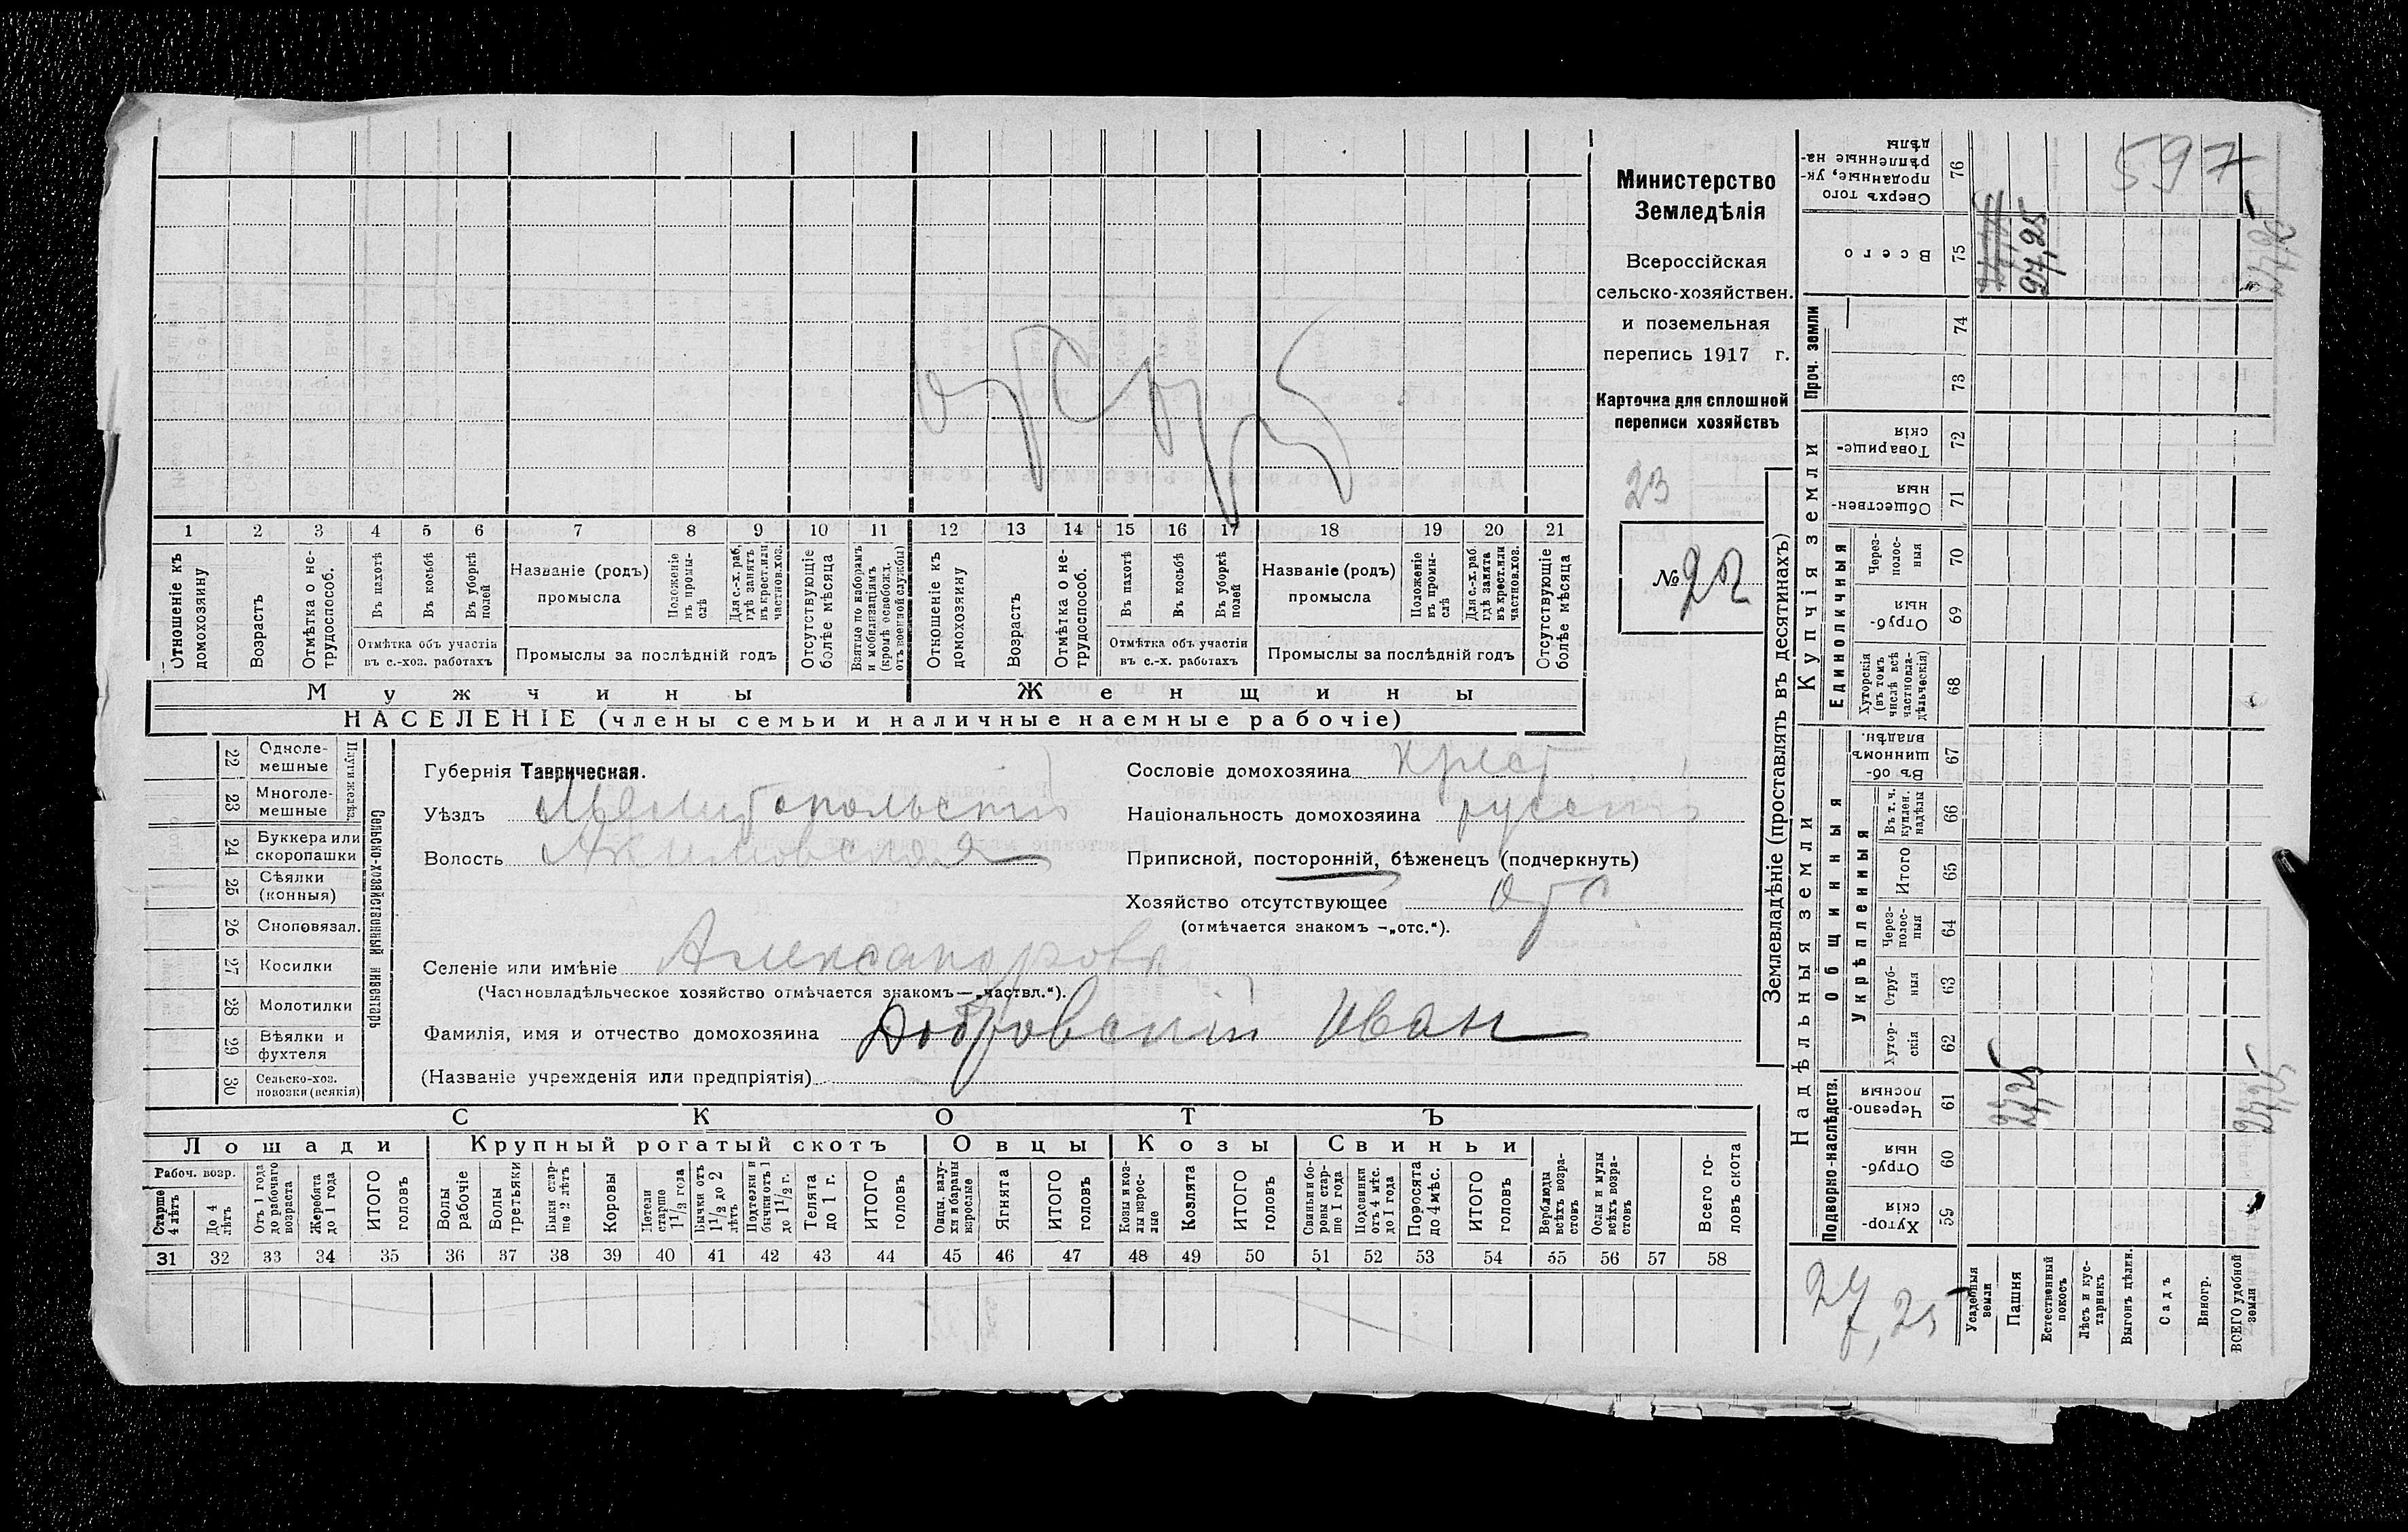 отс
1 2 3 4 5 6 7 8 9 10 11 12 13 14 15 16 17 18 19 20 21
Отношеніе къ домохозяину
Возрастъ
Отмѣтка о не-трудоспособ.
Въ пахотѣ
Въ косьбѣ
Въ уборкѣ полей
Отмѣтка объ участіи
въ с.-хоз. работахъ
Названіе (родъ)
промысла
Положеніе въ промы-слѣ
Для с.-х. раб. гдѣ занятъ въ крест. или частнов. хоз.
Промыслы за послѣдній годъ
Отсутствующіе болѣе мѣсяца
Взятые по наборамъ и мобилизаціямъ (кромѣ освобожд. отъ военной службы)
Отношеніе къ домохозяину
Возрастъ
Отмѣтка о не-трудоспособ.
Въ пахотѣ
Въ косьбѣ
Въ уборкѣ полей
Отмѣтка объ участіи
въ с.-х. работахъ
Названіе (родъ)
промысла
Положеніе въ промы-слѣ
Для с.-х. раб. гдѣ занята въ крест. или частнов. хоз.
Промыслы за послѣдній годъ
Отсутствующіе болѣе мѣсяца
Мужчины
Женщины
НАСЕЛЕНІЕ (члены семьи и наличные наемные рабочіе)
Министерство
Земледѣлія
Всероссійская
сельско-хозяйствен.
и поземельная
перепись 1917 г.
Карточка для сплошной
переписи хозяйствъ
23
№ 22
Сельско-хозяйственный инвентарь
Плуги желѣз.
22 Одноле-мешные
23 Многоле-мешные
24 Буккера или скоропашки
25 Сѣялки (конныя)
26 Сноповязал.
27 Косилки
28 Молотилки
29 Вѣялки и фухтеля
30 Сельско-хоз. повозки (всякія)
Губернія Таврическая.
Уѣздъ Мелитопольскій
Волость Акимовская
Селеніе или имѣніе Александровка
(Частновладѣльческое хозяйство отмѣчается знакомъ—„частвл.“).
Фамилія, имя и отчество домохозяина Добровскій Иван
(Названіе учрежденія или предпріятія)
Сословіе домохозяина крест
Національность домохозяина русскій
Приписной, посторонній, бѣженецъ (подчеркнуть)
Хозяйство отсутствующее отс
(отмѣчается знакомъ —„отс.“).
СКОТЪ
Лошади
Крупный рогатый скотъ
Овцы
Козы
Свиньи
Рабоч. возр.
Старше 4 лѣтъ
До 4 лѣтъ
Отъ 1 года до рабочаго возраста
Жеребята до 1 года
ИТОГО головъ
Волы рабочіе
Волы третьяки
Быки стар-ше 2 лѣтъ
Коровы
Нетели старше 1 1/2 года
Бычки отъ 1 1/2 до 2 лѣтъ
Подтелки и бычки отъ 1 до 1 1/2 г.
Телята до 1 г.
ИТОГО головъ
Овцы, валу-хи и бараны взрослые
Ягнята
ИТОГО головъ
Козы и коз-лы взрос-лые
Козлята
ИТОГО головъ
Свиньи и бо-ровы стар-ше 1 года
Подсвинки отъ 4 мѣс. до 1 года
Поросята до 4 мѣс.
ИТОГО головъ
Верблюды всѣхъ возра-стовъ
Ослы и мулы всѣхъ возра-стовъ
Всего го-ловъ скота
31 32 33 34 35 36 37 38 39 40 41 42 43 44 45 46 47 48 49 50 51 52 53 54 55 56 57 58
Землевладѣніе (проставлять въ десятинахъ)
Надѣльныя земли
Подворно-наслѣдств.
Хутор-скія 59
Отруб-ныя 60
Черезпо-лосныя 61
Общинныя
Укрѣпленныя
Хутор-скія 62
Отруб-ныя 63
Через-полос-ныя 64
Итого 65
Въ т. ч. куплен. надѣлы 66
Въ об-щинномъ владѣн. 67
Купчія земли
Единоличныя
Хуторскія (въ томъ числѣ всѣ частновла-дѣльческія) 68
Отруб-ныя 69
Через-полос-ныя 70
Обществен-ныя 71
Товарище-скія 72
Проч. земли
73
74
Всего 75
Сверхъ того проданные, ук-рѣпленные на-дѣлы 76
597
27,25
Усадебныя земли
Пашня
Естественный покосъ
Лѣсъ и кус-тарникъ
Выгонъ цѣлин.
Садъ
Виногр.
ВСЕГО удобной земли